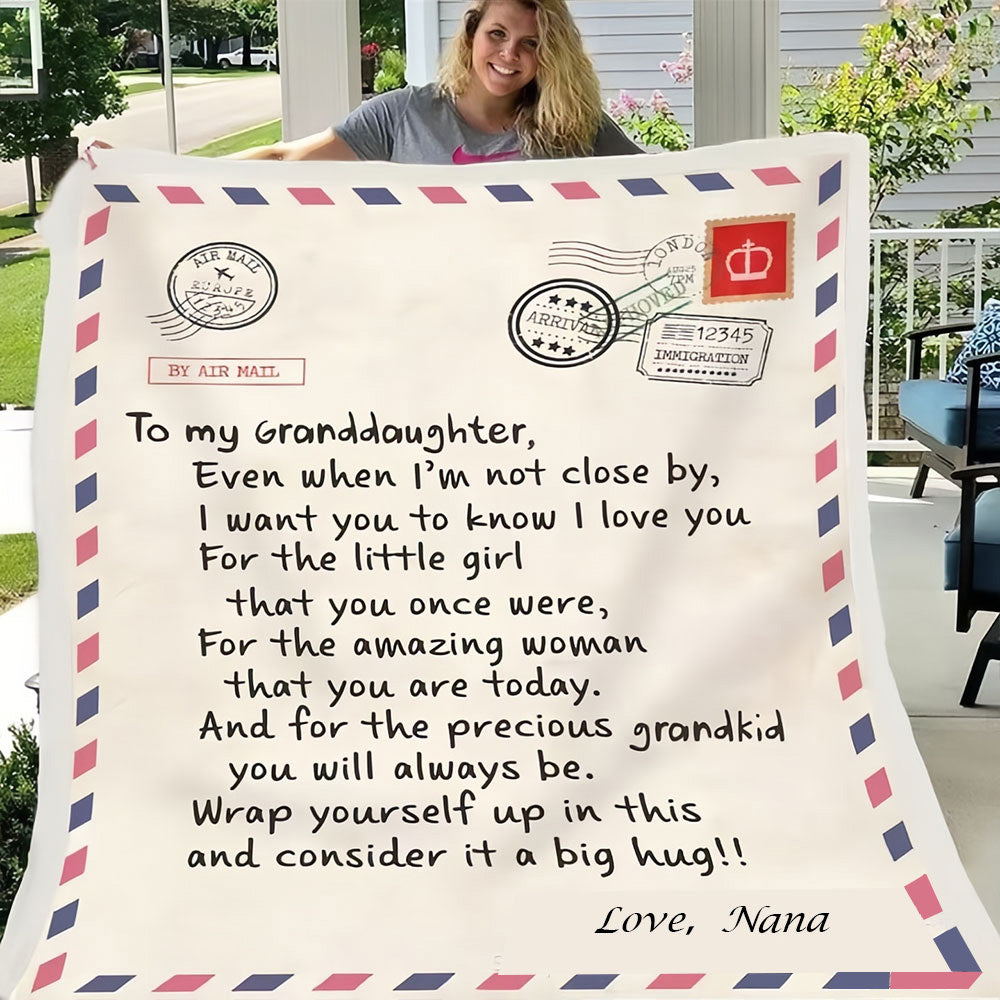 AIR MAIL
EUROPE
12345
BY AIR MAIL
LONDO
7PM
ARRIVA
12345
IMMIGRATION
To my Granddaughter,
Even when I'm not close by,
I want you to know I love you
For the little girl
that you once were,
For the amazing woman
that you are today.
And for the precious grandkid
you will always be.
Wrap yourself up in this
and consider it a big hug!!
Love, Nana